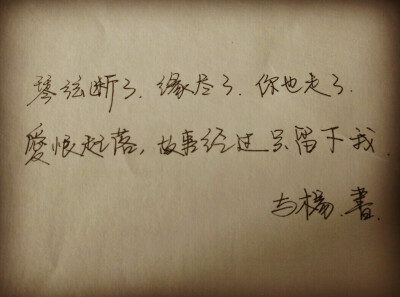 琴弦断了.缘尽了.你也走了.
愛恨起落,故事经过只留下我.
与楊.書.